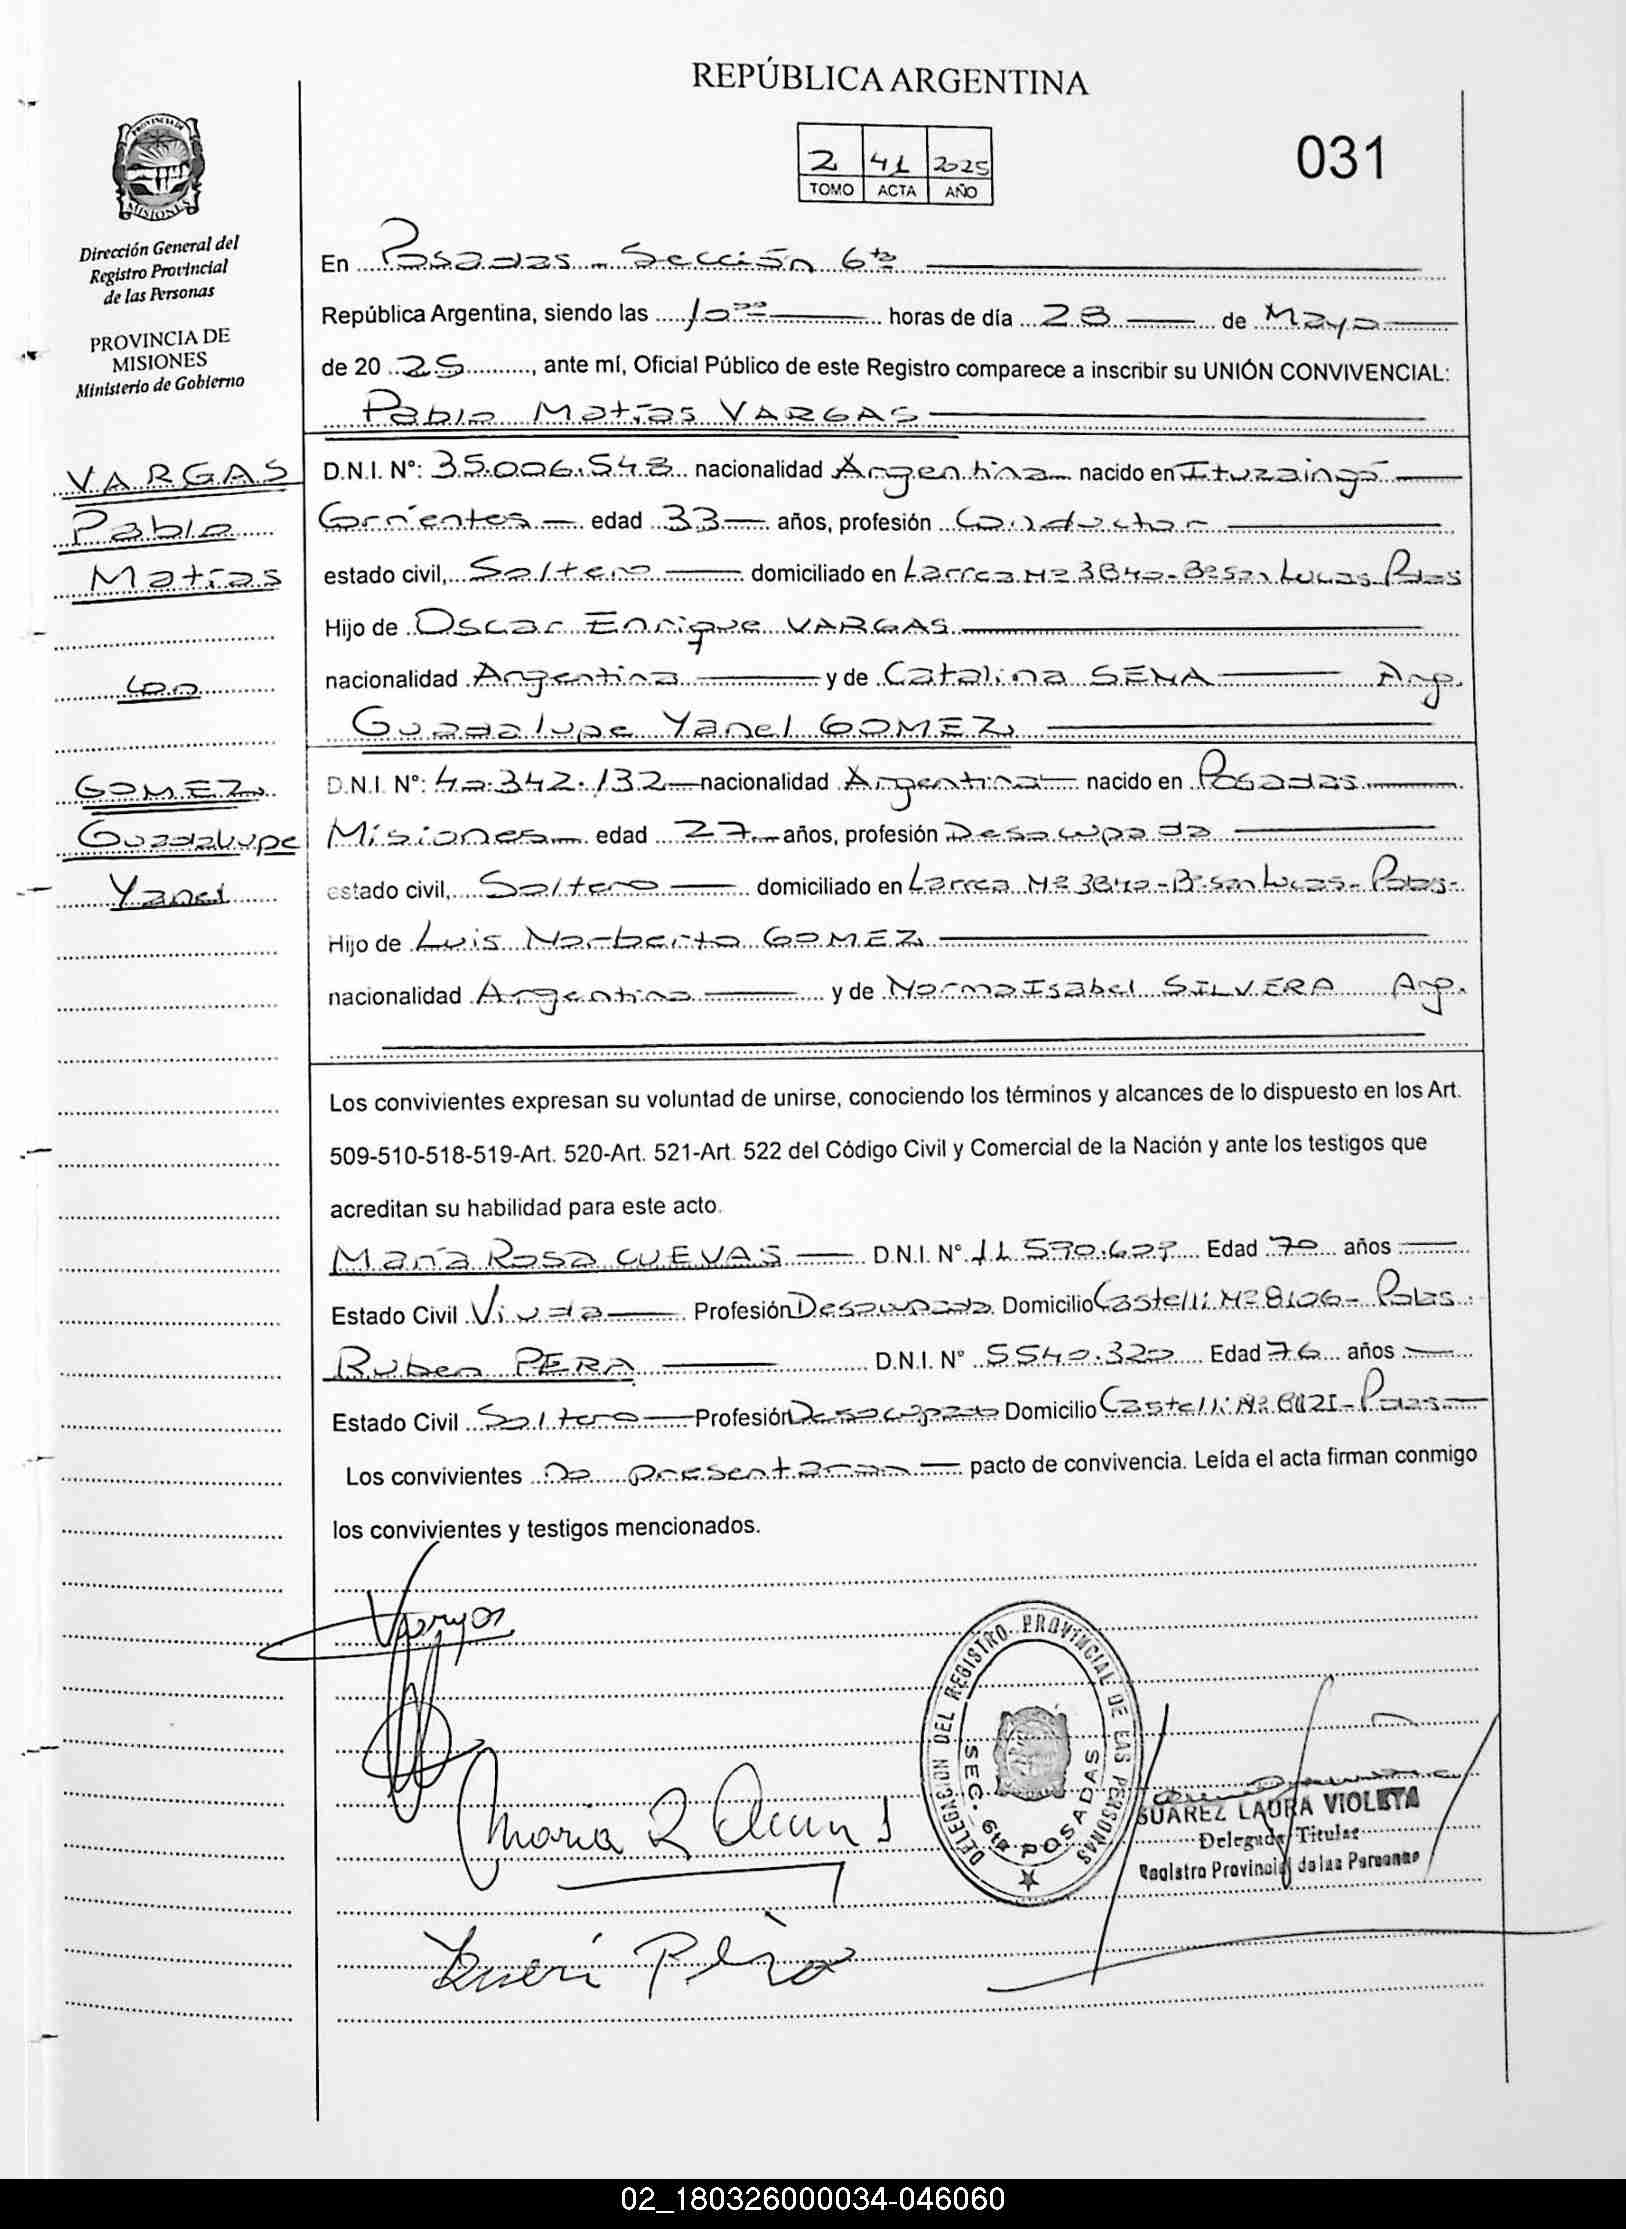 REPÚBLICA ARGENTINA
2 41 2025
TOMO ACTA AÑO
031
PROVINCIA DE
MISIONES
Dirección General del
Registro Provincial
de las Personas
PROVINCIA DE
MISIONES
Ministerio de Gobierno
En Posadas - Sección 6ta
República Argentina, siendo las 10:00 horas de día 28 de Mayo
de 20 25, ante mí, Oficial Público de este Registro comparece a inscribir su UNIÓN CONVIVENCIAL:
Pablo Matías VARGAS
VARGAS
Pablo
Matías
con
GOMEZ
Guadalupe
Yanel
D.N.I. Nº: 35.006.548 nacionalidad Argentina nacido en Ituzaingó
Corrientes edad 33 años, profesión Conductor
estado civil, Soltero domiciliado en Larrea Nº 3840 - Bº San Lucas Pdas
Hijo de Oscar Enrique VARGAS
nacionalidad Argentina y de Catalina SENA Arg.
Guadalupe Yanel GOMEZ
D.N.I. Nº: 40.342.132 nacionalidad Argentina nacido en Posadas
Misiones edad 27 años, profesión Desocupada
estado civil, Soltero domiciliado en Larrea Nº 3840 - Bº San Lucas - Pdas-
Hijo de Luis Norberto GOMEZ
nacionalidad Argentina y de Norma Isabel SILVERA Arg.
Los convivientes expresan su voluntad de unirse, conociendo los términos y alcances de lo dispuesto en los Art.
509-510-518-519-Art. 520-Art. 521-Art. 522 del Código Civil y Comercial de la Nación y ante los testigos que
acreditan su habilidad para este acto.
María Rosa CUEVAS D.N.I. Nº 11.570.607 Edad 70 años
Estado Civil Viuda Profesión Desocupada Domicilio Castelli Nº 8106 - Pdas.
Ruben PERA D.N.I. Nº 5540.320 Edad 76 años
Estado Civil Soltero Profesión Desocupado Domicilio Castelli Nº 8121 - Pdas
Los convivientes no presentaron pacto de convivencia. Leída el acta firman conmigo
los convivientes y testigos mencionados.
Vargas
Maria R
DELEGACION DEL REGISTRO PROVINCIAL DE LAS PERSONAS
SEC. 6ta POSADAS
SUAREZ LAURA VIOLETA
Delegada Titular
Registro Provincial de las Personas
02_180326000034-046060